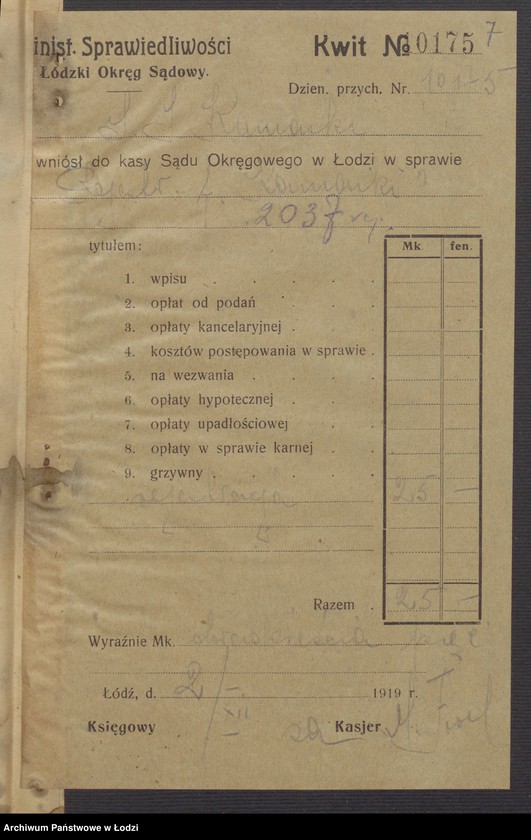 inist. Sprawiedliwości
Łódzki Okręg Sądowy.
Kwit № 10175 7
Dzien. przych. Nr. 10175
wniósł do kasy Sądu Okręgowego w Łodzi w sprawie
2037
tytułem:
Mk. fen.
1. wpisu
2. opłat od podań
3. opłaty kancelaryjnej
4. kosztów postępowania w sprawie
5. na wezwania
6. opłaty hypotecznej
7. opłaty upadłościowej
8. opłaty w sprawie karnej
9. grzywny
25 —
Razem 25 —
Wyraźnie Mk. dwadzieścia pięć
Łódź, d. 2/XII 1919 r.
Księgowy za Kasjer
Archiwum Państwowe w Łodzi